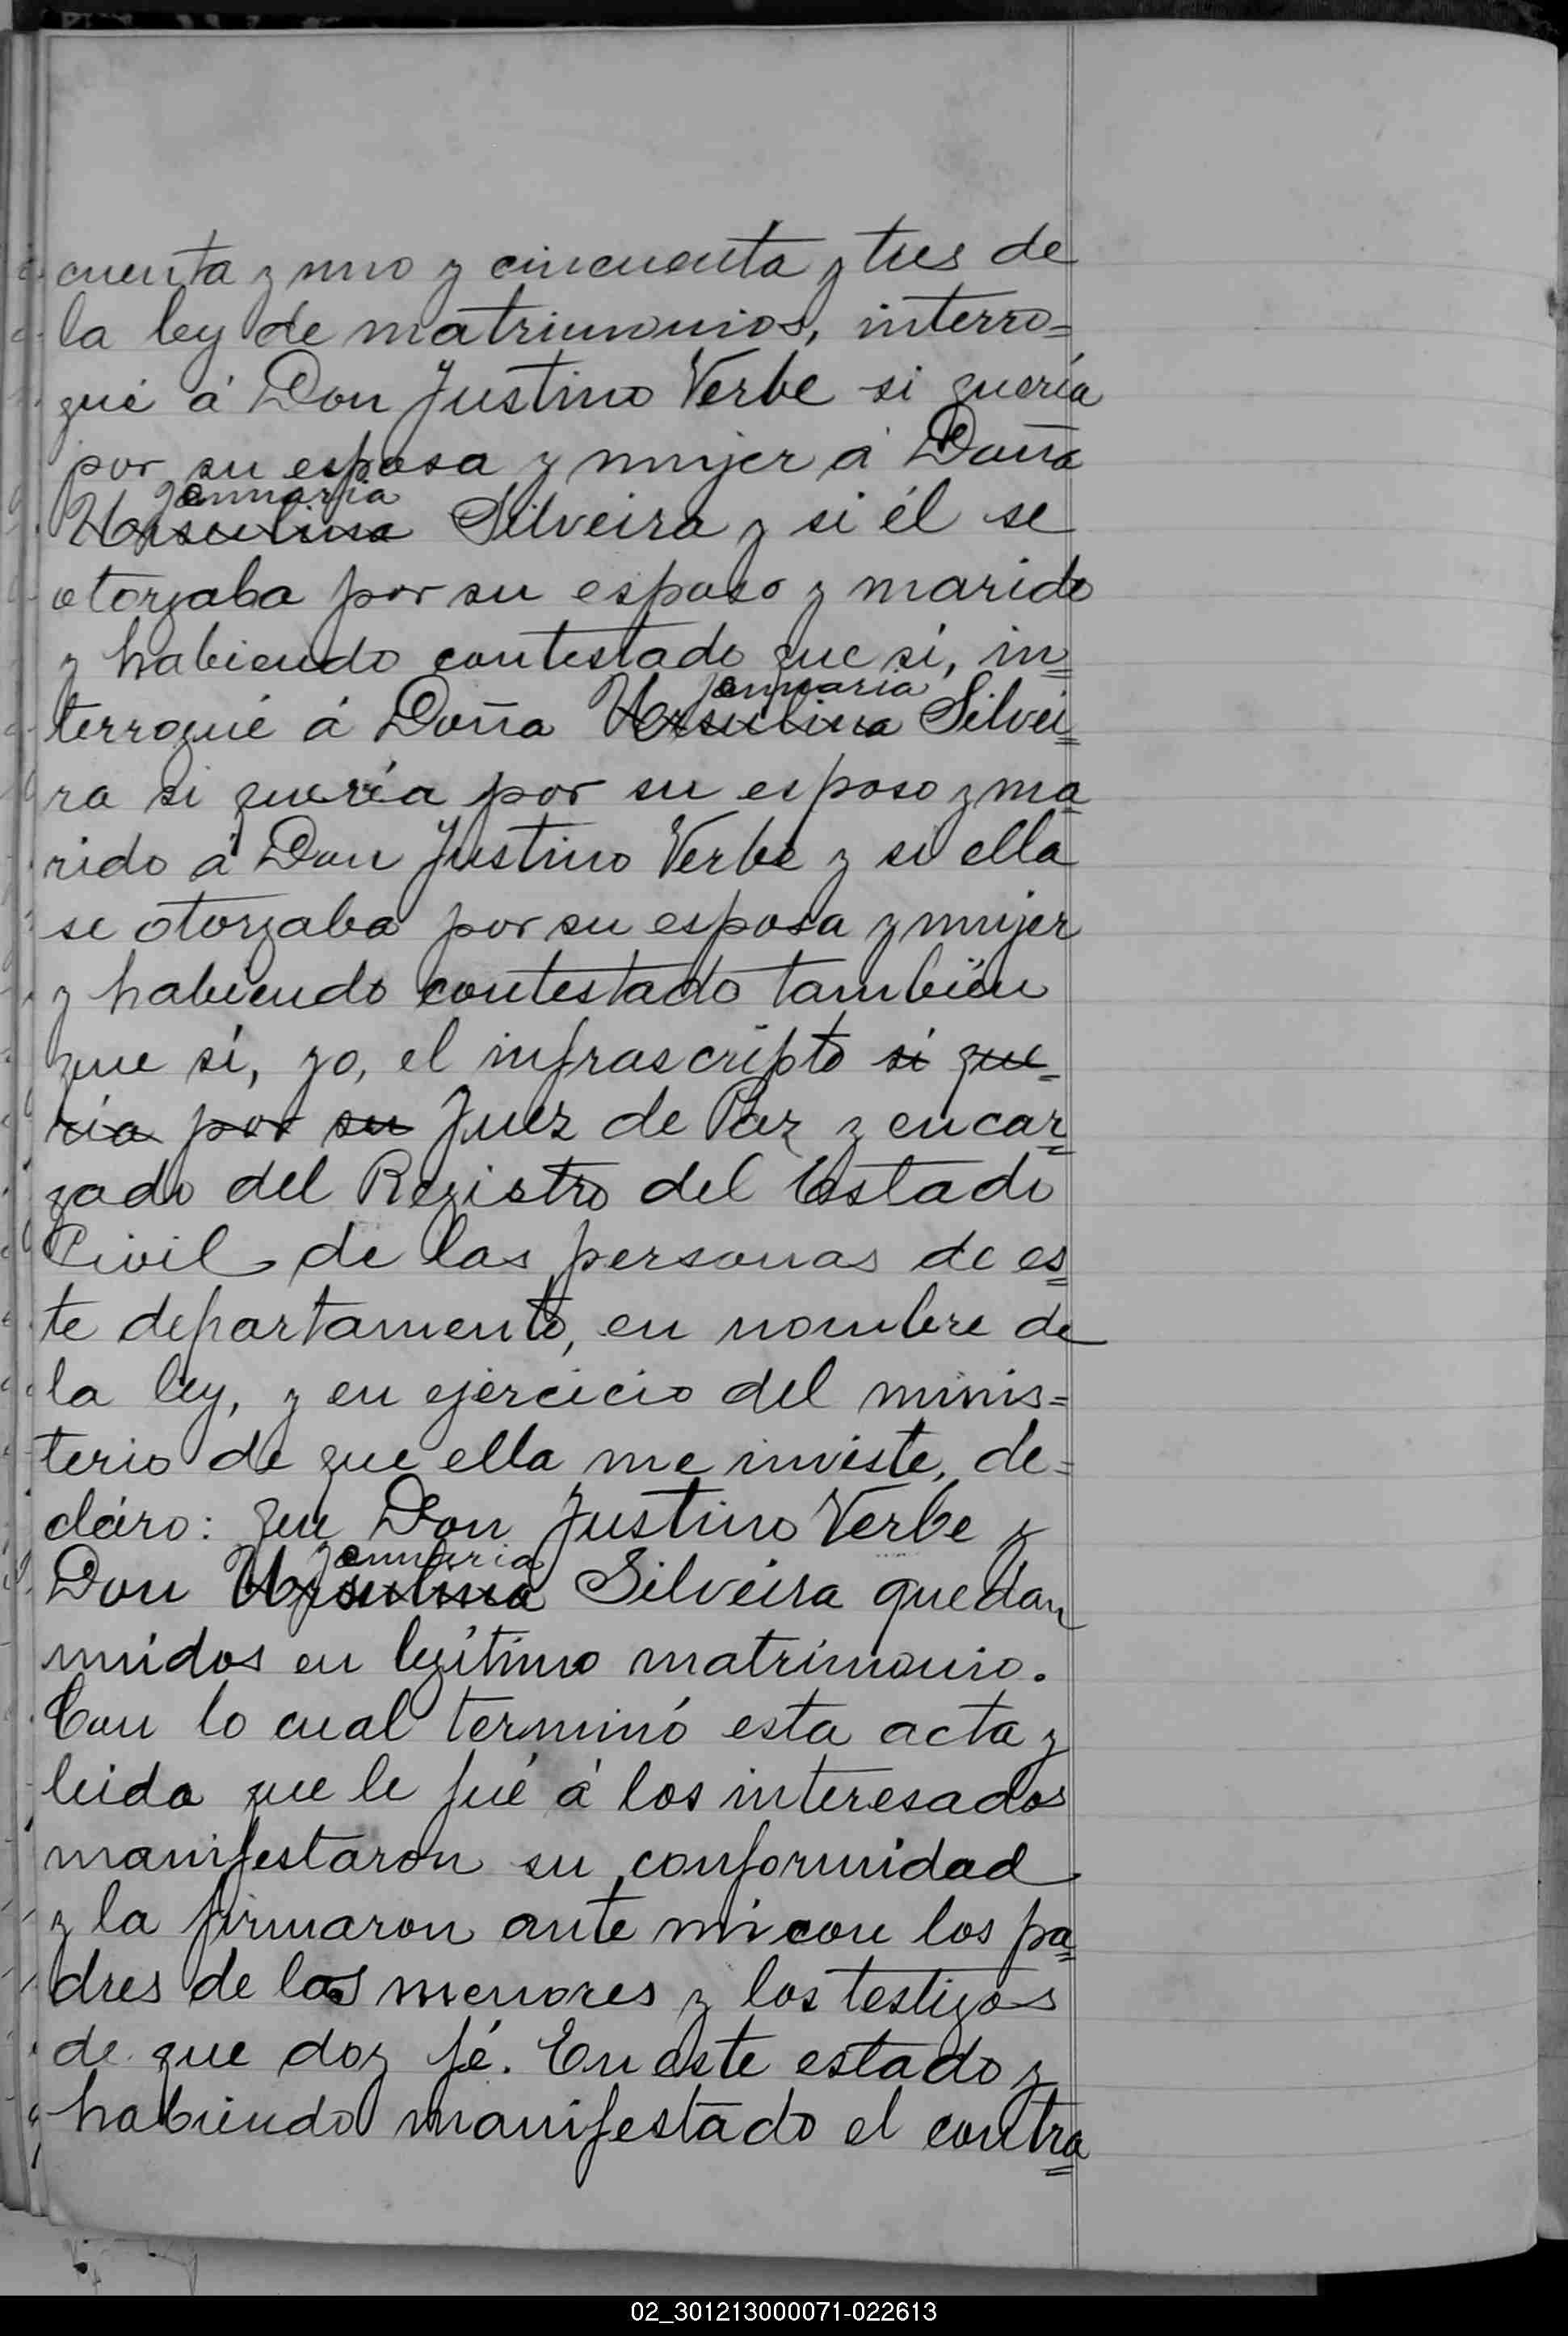 cuenta y uno y cincuenta y tres de
la ley de matrimonios, interro=
gué á Don Justino Verbe si quería
por su esposa y mujer á Doña
Januaria
Ursulina Silveira y si él se
otorgaba por su esposo y marido
y habiendo contestado que sí, in=
Januaria
terrogué á Doña Ursulina Silvei=
ra si quería por su esposo y ma=
rido á Don Justino Verbe y si ella
se otorgaba por su esposa y mujer
y habiendo contestado también
que sí, yo, el infrascripto si que=
ria por su Juez de Paz y encar=
gado del Registro del Estado
Civil de las personas de es=
te departamento, en nombre de
la ley, y en ejercicio del minis=
terio de que ella me inviste, de=
claro: que Don Justino Verbe y
Januaria
Don Ursulina Silveira quedan
unidos en legítimo matrimonio.
Con lo cual terminó esta acta y
leida que le fué á los interesados
manifestaron su conformidad
y la firmaron ante mi con los pa=
dres de los menores y los testigos
de que doy fé. En este estado y
habiendo manifestado el contra=
02_301213000071-022613